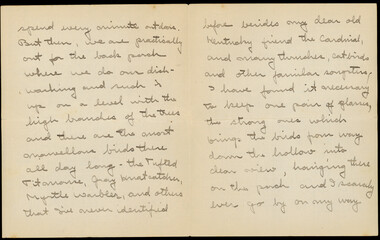 spend every minute outdoors.
But then, we are practically
out for the back porch
where we do our dish-
washing and such is
up on a level with the
high branches of the trees
and there are the most
marvellous birds there
all day long - the Tufted
Titmouse, Gray Gnatcatcher,
Myrtle warbler, and others
that I've never identified
before besides my dear old
Kentucky friend the Cardinal,
and many thrushes, catbirds
and other familiar songsters.
I have found it necessary
to keep one pair of glasses,
the strong ones which
brings the birds from way
down the hollow into
clear view, hanging there
on the porch and I scarcely
ever go by on my way